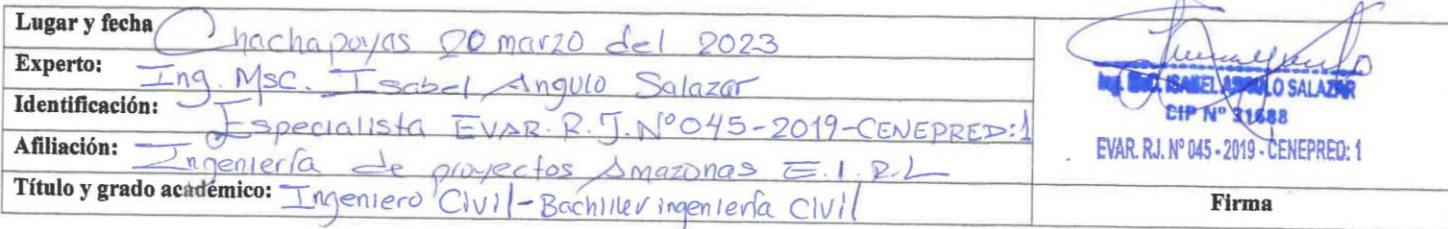 Lugar y fecha Chachapoyas 20 marzo del 2023
Experto: Ing. Msc. Isabel Angulo Salazar
Identificación: Especialista EVAR. R. J. N°045-2019-CENEPRED:1
Afiliación: Ingeniería de proyectos Amazonas E.I.R.L
Título y grado académico: Ingeniero Civil-Bachiller ingeniería Civil
ISABEL ANGULO SALAZAR
CIP Nº 31688
EVAR. RJ. Nº 045 - 2019 - CENEPRED: 1
Firma